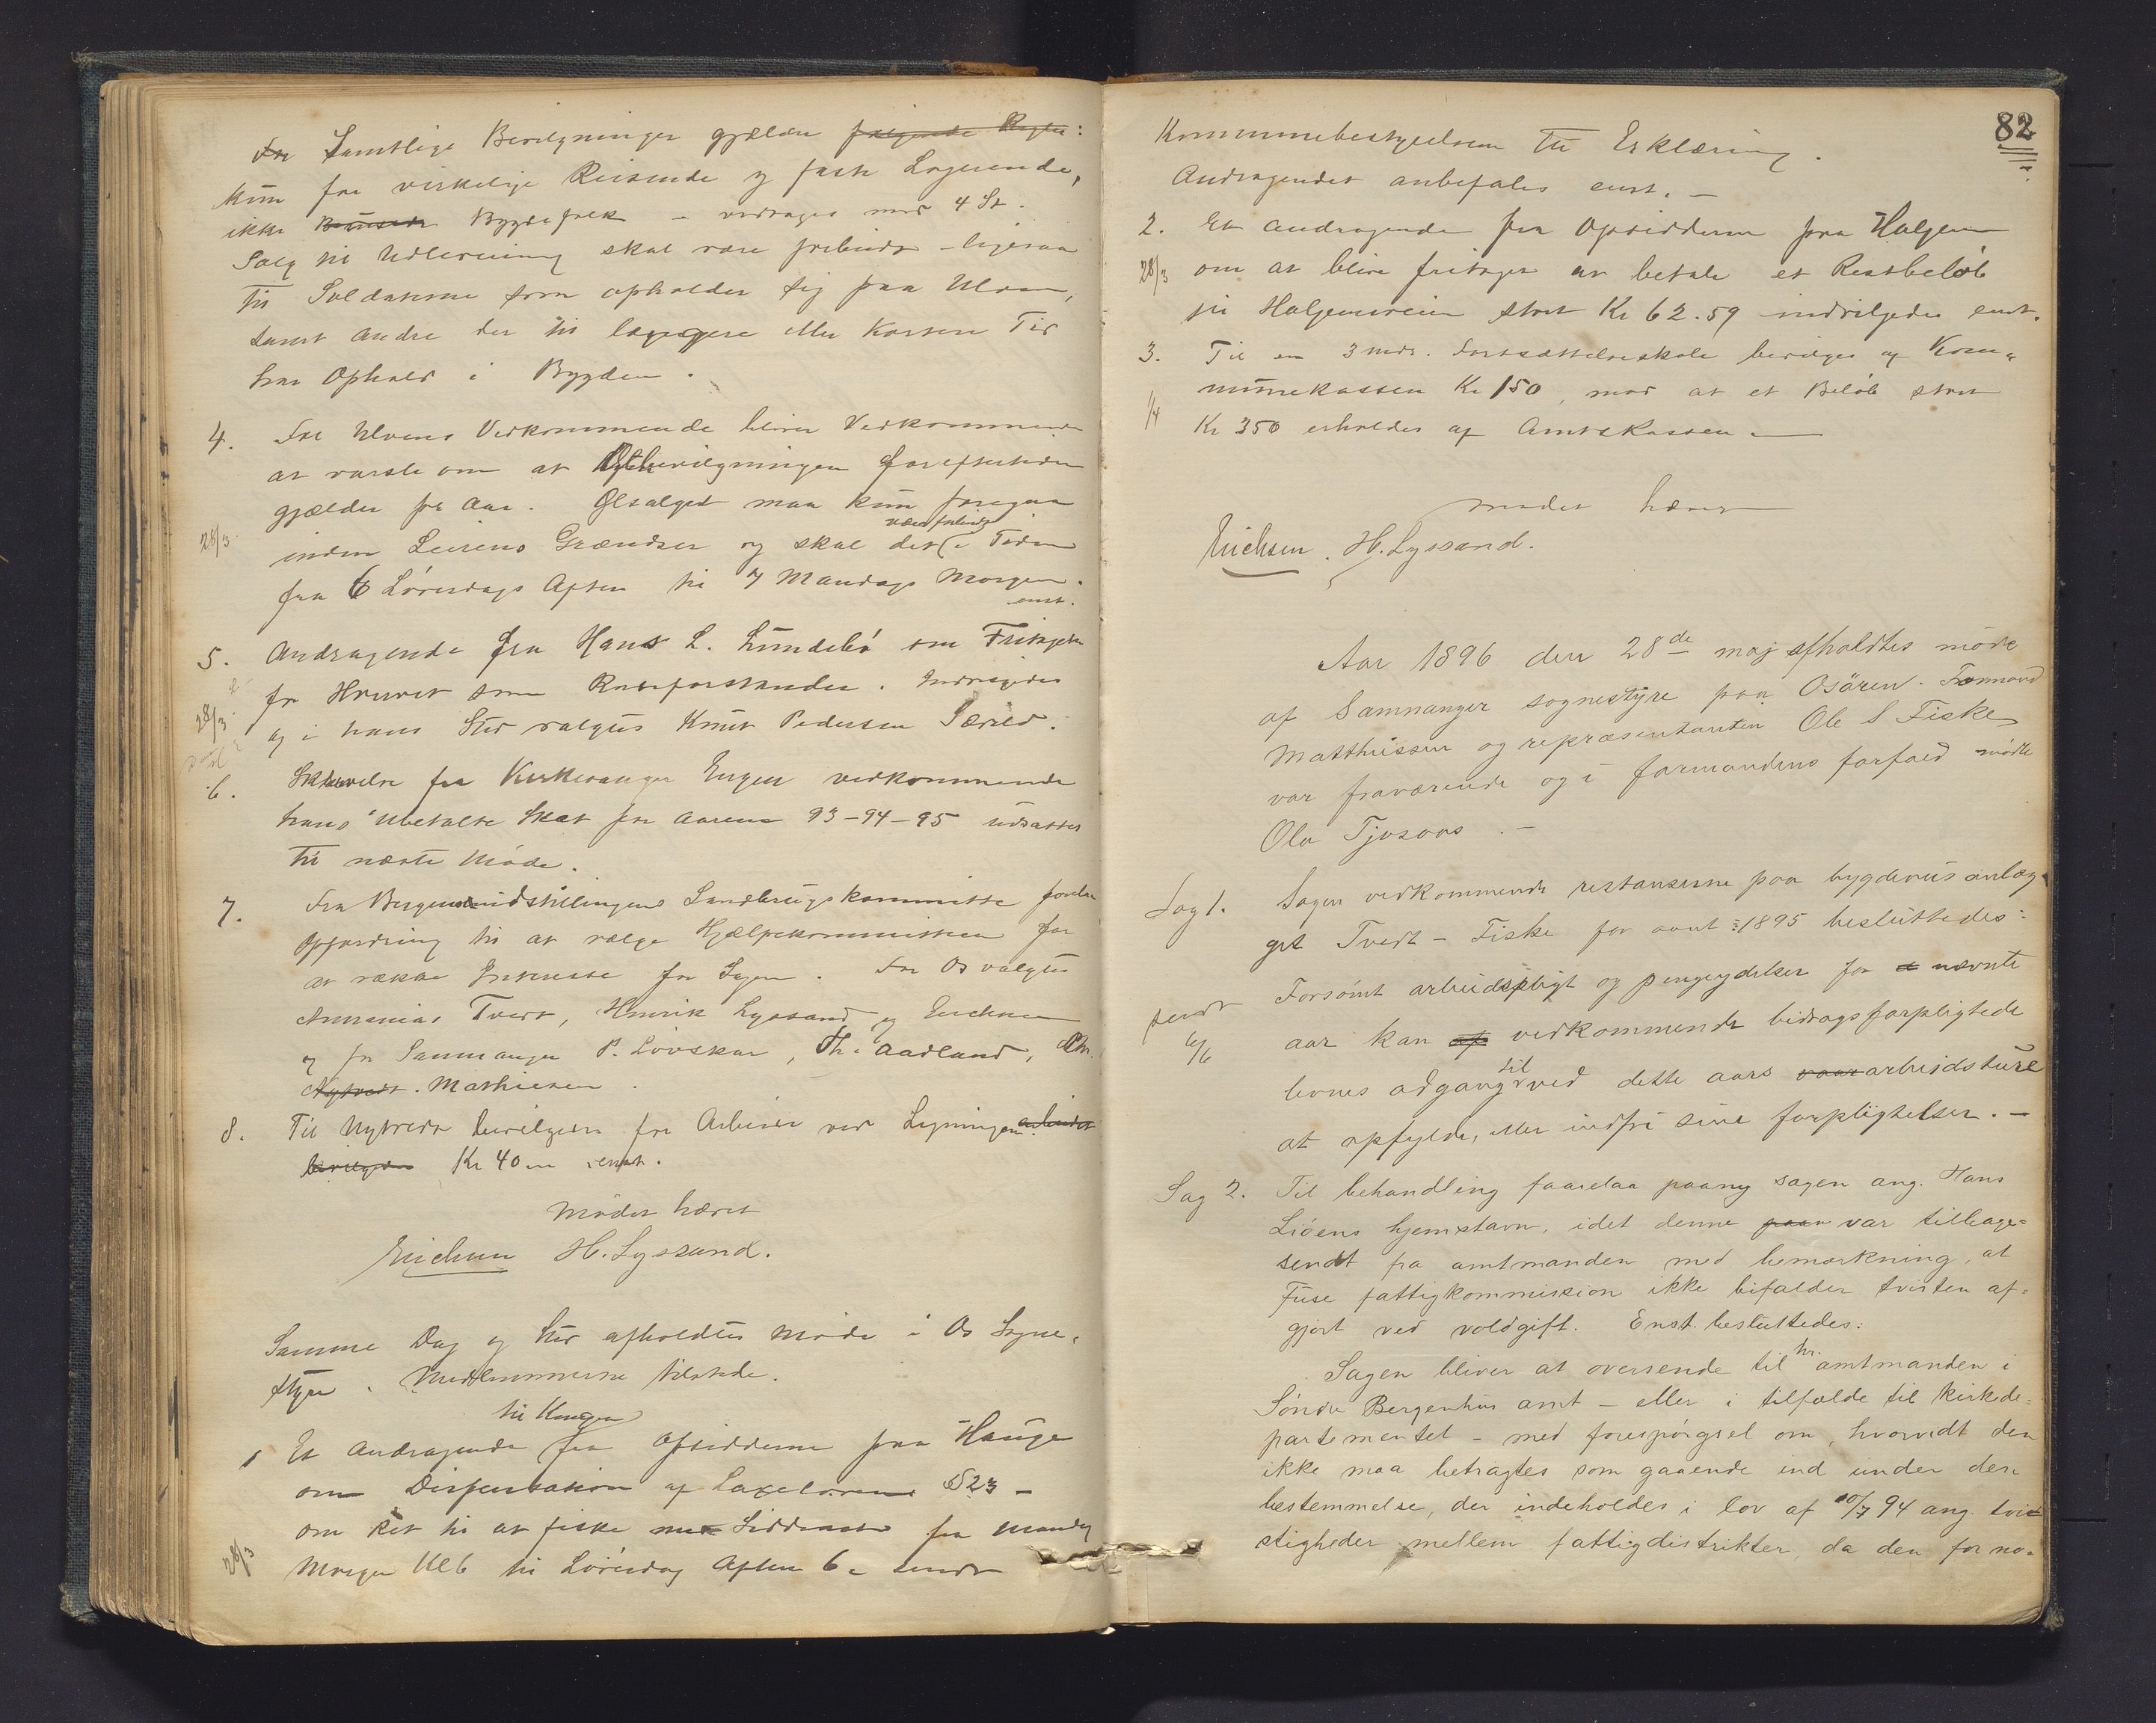 For Samtlige Bevilgninger gjælder følgende Regler:
kun for virkelige Reisende og faste Logerende,
ikke Bygdefolk – vedtages mod 4 St.
Salg til Udlevering skal være forbudt – ligesaa
til Soldaterne som opholder sig paa Ulven,
samt andre der til længere eller kortere Tid
har Ophold i Bygden.
4. For Ulvens Vedkommende bliver Vedkommende
at varsle om at Ølbevilgningen for eftertiden
gjælder pr Aar. Ølsalget maa kun foregaa
28/3 inden Leirens Grændser og skal det være forbudt i Tiden
fra 6 Lørerdags Aften til 7 Mandags Morgen.
enst.
5. Andragende fra Hans L. Lundebø om Fritagelse
28/3 for Hvervet som Rodeforstander. Indvilgedes
og i hans Sted valgtes Knut Pedersen Særvold.
6. Skrivelse fra Kirkesanger Engen vedkommende
hans ubetalte Skat for Aarene 93-94-95 udsattes
til næste Møde.
7. Fra Bergensudstillingens Landbrugskommitte forelaa
Opfordring til at vælge Hjælpekommitteen for
at vække Interesse for Sagen. For Os valgtes
Annanias Tvedt, Henrik Lyssand og Erichsen
og for Samnanger P. Løvskar, Th. Aadland, Chr.
Nytvedt. Mathiesen.
8. Til Nytvedt bevilgedes for Arbeider ved Ligningen arbeidet
bevilgedes Kr 40 – enst.
Mødet hævet
Erichsen H. Lyssand.
Samme Dag og Sted afholdtes Møde i Os Sogne-
styre. Medlemmerne tilstede.
til Kongen
1 Et Andragende fra Opsidderne paa Hauge
om Dispensation af Laxelovens § 23 –
om Ret til at fiske med Siddenot fra Mandag
28/3 Morgen Kl 6 til Lørerdag Aften 6 – sendt
82
Kommunebestyrelsen til Erklæring.
Andragendet anbefales enst. –
2. Et Andragende fra Opsidderne paa Halgem
28/3 om at blive fritaget at betale et Restbeløb
til Halgemsveien stort Kr 62.59 indvilgedes enst.
3. Til en 3 mdr. Fortsættelsesskole bevilges af Kom-
munekassen Kr 150, mod at et Beløb stort
1/4 Kr 350 erholdes af Amtskassen –
mødet hævet
Erichsen. H. Lyssand.
Aar 1896 den 28de maj afholdtes møde
af Samnanger sognestyre paa Osøren. Formand
Matthiesen og repræsentanten Ole S Fiske
var fraværende og i formandens forfald mødte
Ola Tjosaas. –
Sag 1. Sagen vedkommende restanserne paa bygdeveisanlæg-
get Tvedt – Fiske for aaret 1895 besluttedes:
sendt Forsømt arbeidspligt og pengeydelser for nævnte
6/6 aar kan af vedkommende bidragsforpligtede
levnes adgang til ved dette aars vaar arbeidsture
at opfylde, eller indfri sine forpligtelser. –
Sag 2. Til behandling foorelaa paany sagen ang. Hans
Lioens hjemstavn, idet denne paan var tilbage-
sendt fra amtmanden med bemærkning, at
Fuse fattigkommission ikke bifalder tvisten af-
gjort ved voldgift. Enst. besluttedes:
Sagen bliver at oversende til hr. amtmanden i
Søndre Bergenhus amt – eller i tilfælde til kirkede-
partementet – med forespørgsel om, hvorvidt den
ikke maa betragtes som gaaende ind under den
bestemmelse, der indeholdes i lov af 20/7 94 ang. tvi-
stigheder mellem fattigdistrikter da den for no-